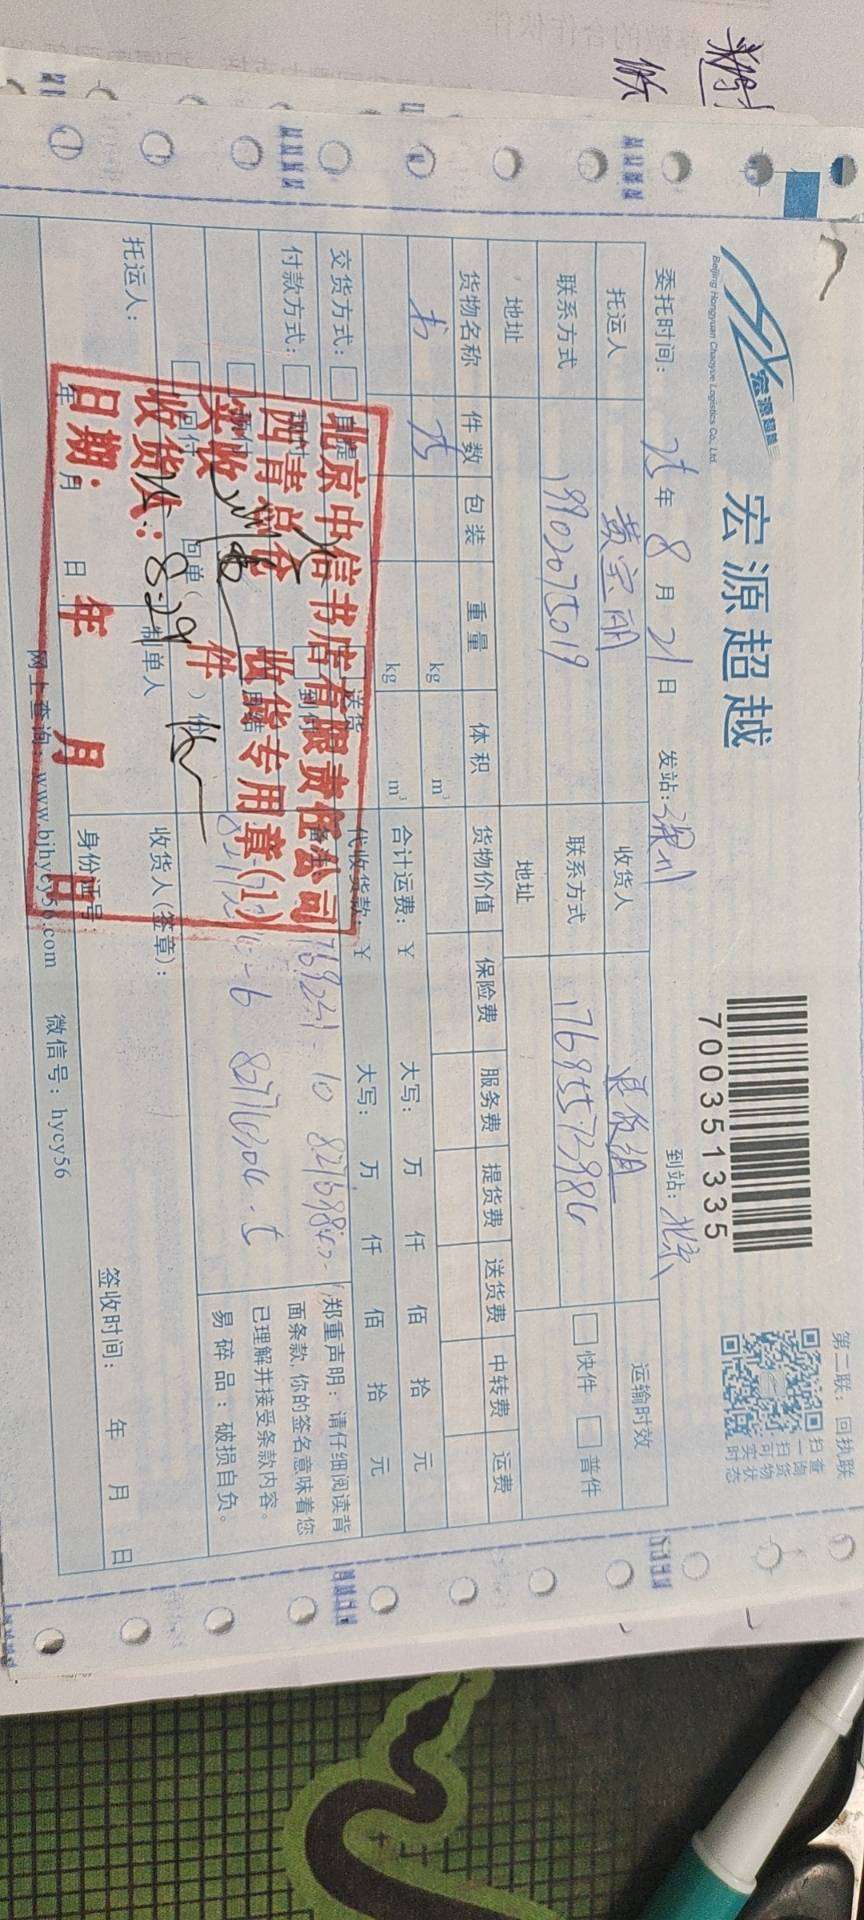 宏源超越
Beijing Hongyuan Chaoyue Logistics Co., Ltd.
宏源超越
700351335
第二联：回执联
扫一扫可实时
查询货物状态
委托时间：25年8月21日 发站：深圳 到站：北京
托运人 黄宝丽 收货人 退货组 运输时效
联系方式 19902075019 联系方式 17695573984 快件 普件
地址 地址
货物名称 件数 包装 重量 体积 货物价值 保险费 服务费 提货费 送货费 中转费 运费
书 25 kg m³
kg m³ 合计运费：￥ 大写： 万 仟 佰 拾 元
交货方式： 自提 送货 代收货款：￥ 大写： 万 仟 佰 拾 元
付款方式： 现付 到付 备注
回付 回单（ ）份
郑重声明：请仔细阅读背
面条款,你的签名意味着您
已理解并接受条款内容。
易碎品：破损自负。
82776304-5
北京中信书店有限责任公司
收货专用章(1)
实收 件
收货人：
日期： 年 月 日
8.29
托运人： 制单人 收货人(签章)：
年 月 日 身份证号： 签收时间： 年 月 日
网上查询：www.bjhycy56.com 微信号：hycy56